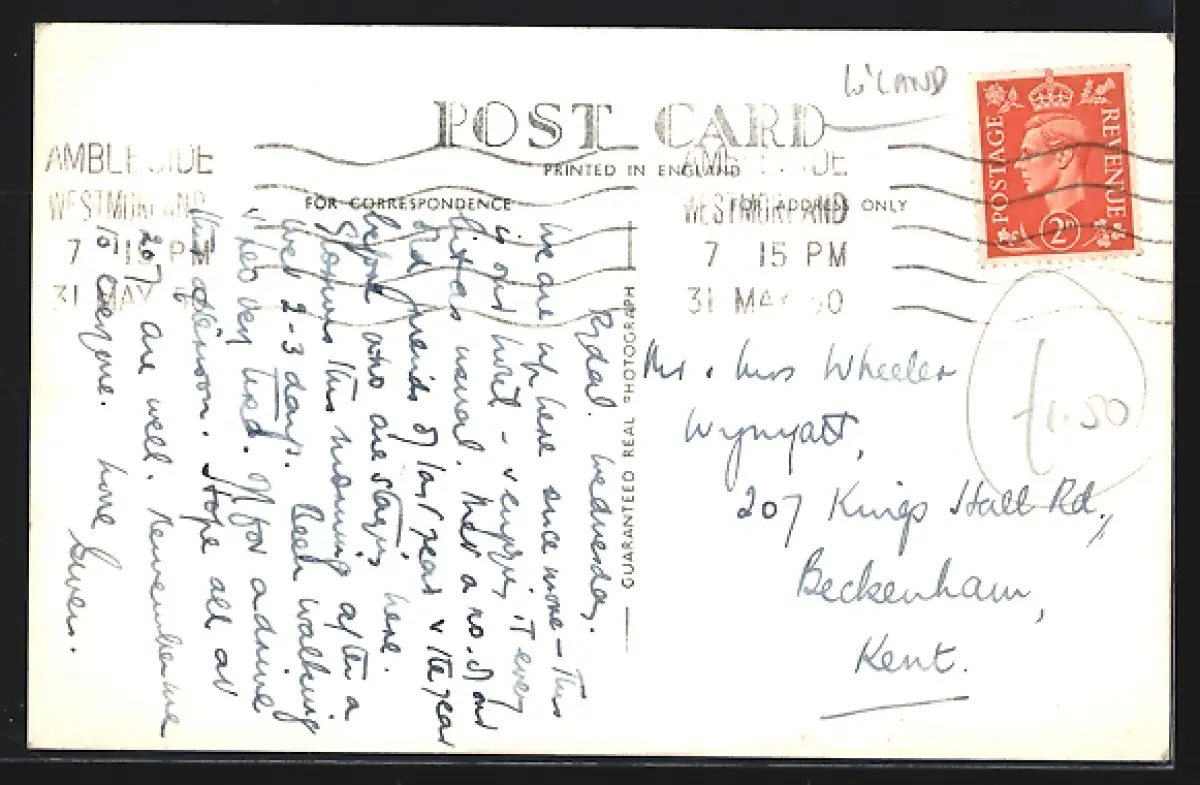 W'LAND
POST CARD
PRINTED IN ENGLAND
FOR CORRESPONDENCE
FOR ADDRESS ONLY
AMBLESIDE
WESTMORLAND
7 15 PM
31 MAY 50
AMBLESIDE
WESTMORLAND
7 15 PM
31 MAY 50
POSTAGE
REVENUE
2D
GUARANTEED REAL PHOTOGRAPH
Rydal. Wednesday.
We are up here once more – this
is our hotel – & enjoying it every
bit as usual. Met a no. of our
old friends of last year & the year
before who are staying here.
Glorious this morning after a
wet 2–3 days. Been walking
very hard. Off for a drive
this afternoon. Hope all at
207 are well. Remember me
to everyone. Love
Mr & Mrs Wheeler
Wynyatt,
207 Kings Hall Rd,
Beckenham,
Kent.
£1.50